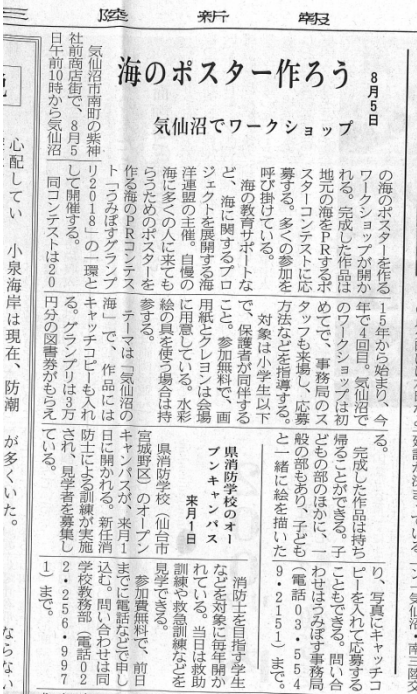 三陸新報
8月5日
海のポスター作ろう
気仙沼でワークショップ
気仙沼市南町の紫神
社前商店街で、8月5
日午前10時から気仙沼
の海のポスターを作る
ワークショップが開か
れる。完成した作品は
地元の海をPRするポ
スターコンテストに応
募する。多くの参加を
呼び掛けている。
海の教育サポートな
ど、海に関するプロ
ジェクトを展開する海
洋連盟の主催。自慢の
海に多くの人に来ても
らうためのポスターを
作る海のPRコンテス
ト「うみぽすグランプ
リ2018」の一環と
して開催する。
同コンテストは20
15年から始まり、今
年で4回目。気仙沼で
のワークショップは初
めてで、事務局のス
タッフも来場し、応募
方法などを指導する。
対象は小学生以下
で、保護者が同伴する
こと。参加無料で、画
用紙とクレヨンは会場
に用意している。水彩
絵の具を使う場合は持
参する。
テーマは「気仙沼の
海」で、作品には
キャッチコピーも入れ
る。グランプリは3万
円分の図書券がもらえ
る。
完成した作品は持ち
帰ることができる。子
どもの部のほかに、一
般の部もあり、子ども
と一緒に絵を描いた
り、写真にキャッチコ
ピーを入れて応募する
こともできる。問い合
わせはうみぽす事務局
(電話03・554
9・2151)まで。
県消防学校のオー
プンキャンパス
来月1日
県消防学校(仙台市
宮城野区)のオープン
キャンパスが、来月1
日に開かれる。新任消
防士による訓練が実施
され、見学者を募集し
ている。
消防士を目指す学生
などを対象に毎年開か
れている。当日は救助
訓練や救急訓練などを
見学できる。
参加費無料で、前日
までに電話などで申し
込む。問い合わせは同
学校教務部(電話02
2・256・997
1)まで。
心配してい
小泉海岸は現在、防潮
が多くいた。